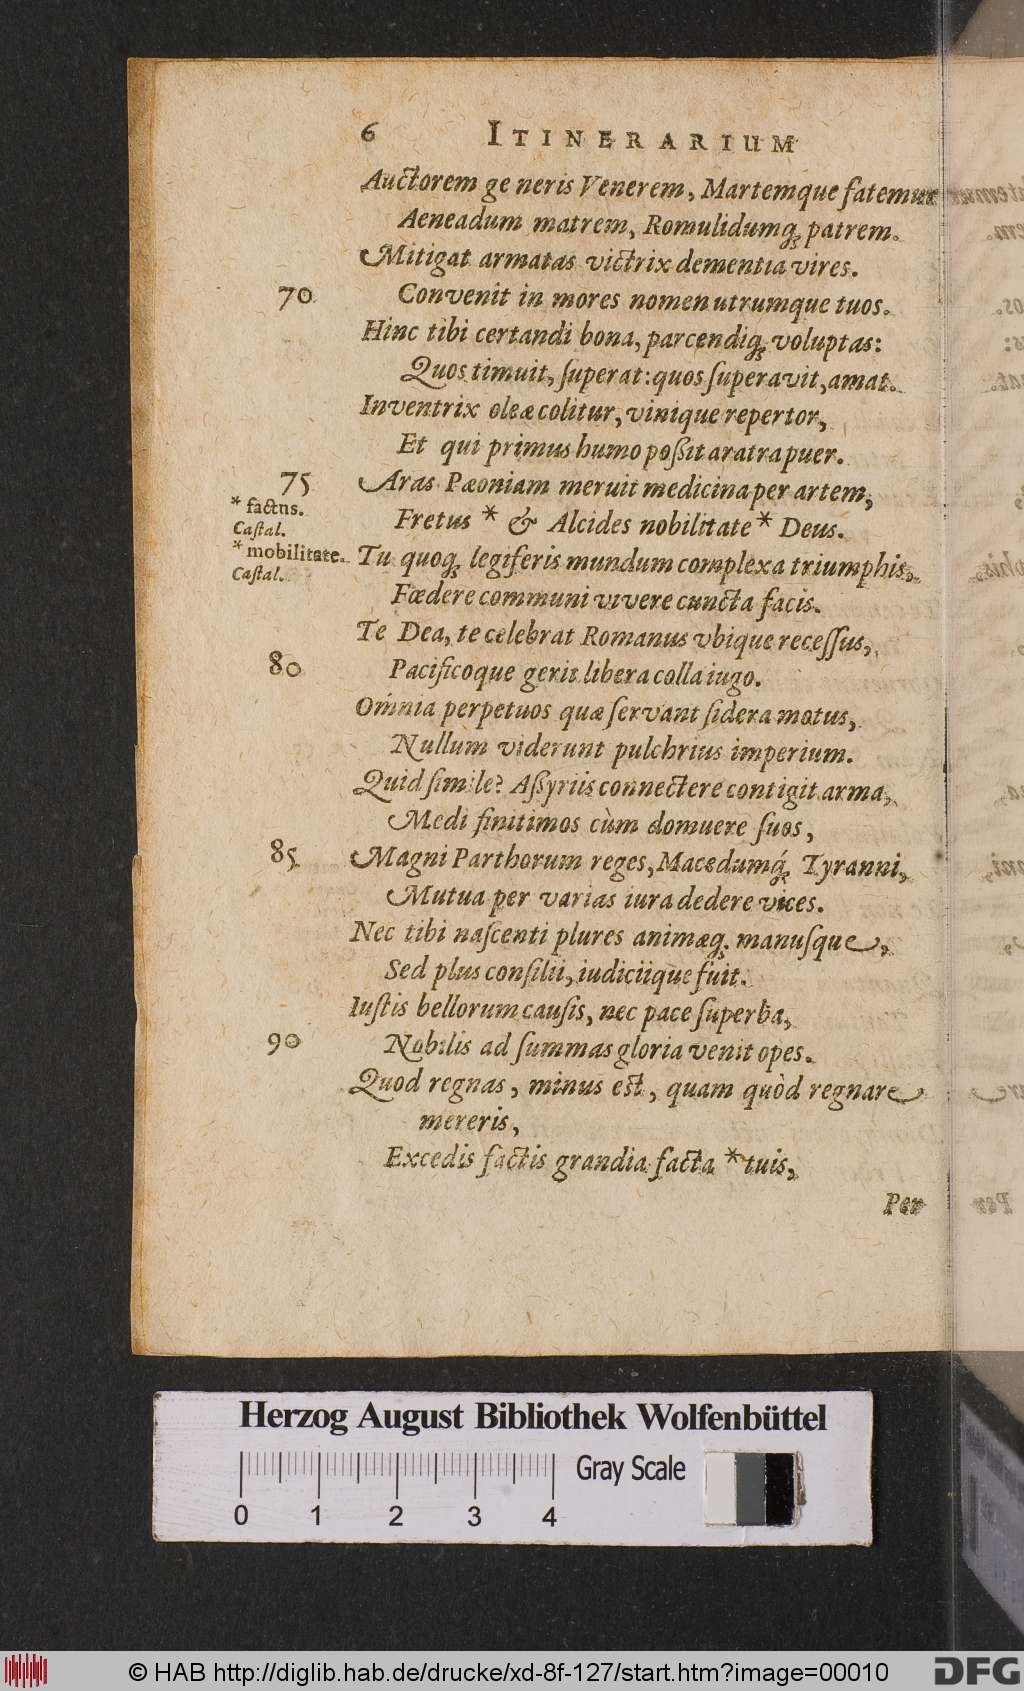 6 ITINERARIUM
Auctorem ge neris Venerem, Martemque fatemur
Aeneadum matrem, Romulidumq́ꝫ patrem.
Mitigat armatas victrix dementia vires.
70 Convenit in mores nomen utrumque tuos.
Hinc tibi certandi bona, parcendiqꝫ voluptas:
Quos timuit, ſuperat: quos ſuperavit, amat.
Inventrix oleæ colitur, vinique repertor,
Et qui primus humo poßit aratra puer.
75 Aras Pæoniam meruit medicina per artem,
* factus.
Fretus * & Alcides nobilitate * Deus.
Caſtal.
* mobilitate.
Tu quoqꝫ legiferis mundum complexa triumphis,
Caſtal.
Fœdere communi vivere cuncta facis.
Te Dea, te celebrat Romanus vbique receſſus,
80 Pacificoque gerit libera colla iugo.
Omnia perpetuos quæ ſervant ſidera motus,
Nullum viderunt pulchrius imperium.
Quid ſimile? Aßyriis connectere contigit arma,
Medi finitimos cùm domuere ſuos,
85 Magni Parthorum reges, Macedumq́ꝫ Tyranni,
Mutua per varias iura dedere vices.
Nec tibi naſcenti plures animæqꝫ manuſque,
Sed plus conſilii, iudiciique fuit.
Iuſtis bellorum cauſis, nec pace ſuperba,
90 Nobilis ad ſummas gloria venit opes.
Quod regnas, minus est, quam quòd regnare
mereris,
Excedis factis grandia facta * tuis,
Per
Herzog August Bibliothek Wolfenbüttel
0 1 2 3 4 Gray Scale
© HAB http://diglib.hab.de/drucke/xd-8f-127/start.htm?image=00010
DFG